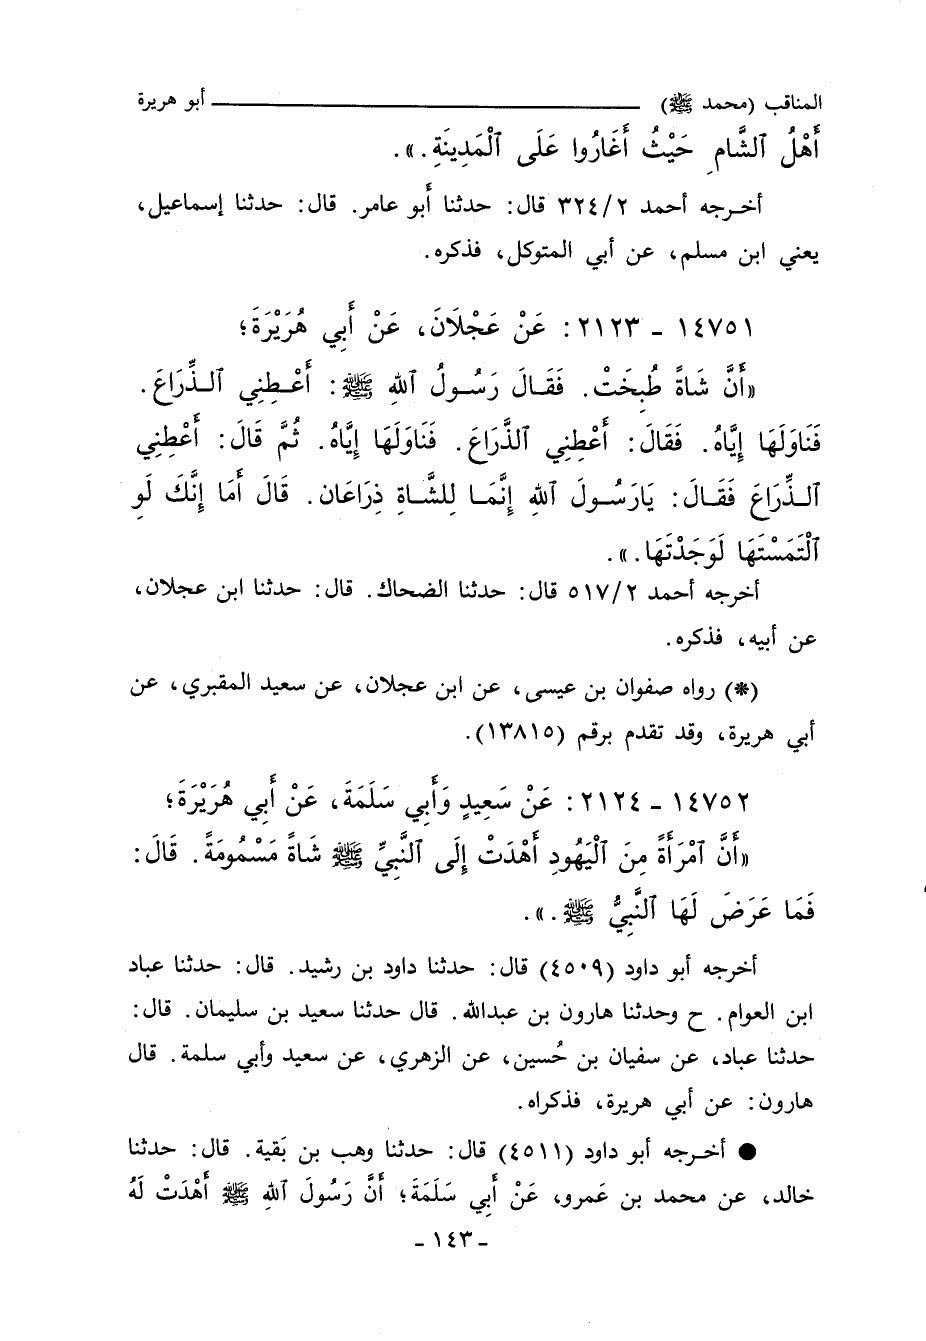 المناقب (محمد ﷺ) ـــــــــ أبو هريرة
أَهْلُ ٱلشَّامِ حَيْثُ أَغَارُوا عَلَى ٱلْمَدِينَةِ.».
أخرجه أحمد ٣٢٤/٢ قال: حدثنا أَبو عامر. قال: حدثنا إسماعيل،
يعني ابن مسلم، عن أبي المتوكل، فذكره.
١٤٧٥١ - ٢١٢٣: عَنْ عَجْلَانَ، عَنْ أَبِي هُرَيْرَةَ؛
«أَنَّ شَاةً طُبِخَتْ. فَقَالَ رَسُولُ ٱللهِ ﷺ: أَعْطِنِي ٱلذِّرَاعَ.
فَنَاوَلَهَا إِيَّاهُ. فَقَالَ: أَعْطِنِي ٱلذَّرَاعَ. فَنَاوَلَهَا إِيَّاهُ. ثُمَّ قَالَ: أَعْطِنِي
ٱلذِّرَاعَ فَقَالَ: يَارَسُولَ ٱللهِ إِنَّمَا لِلشَّاةِ ذِرَاعَان. قَالَ أَمَا إِنَّكَ لَوِ
ٱلْتَمَسْتَهَا لَوَجَدْتَهَا.».
أخرجه أحمد ٥١٧/٢ قال: حدثنا الضحاك. قال: حدثنا ابن عجلان،
عن أبيه، فذكره.
(*) رواه صفوان بن عيسى، عن ابن عجلان، عن سعيد المقبري، عن
أبي هريرة، وقد تقدم برقم (١٣٨١٥).
١٤٧٥٢ - ٢١٢٤: عَنْ سَعِيدٍ وَأَبِي سَلَمَةَ، عَنْ أَبِي هُرَيْرَةَ؛
«أَنَّ ٱمْرَأَةً مِنَ ٱلْيَهُودِ أَهْدَتْ إِلَى ٱلنَّبِيِّ ﷺ شَاةً مَسْمُومَةً. قَالَ:
فَمَا عَرَضَ لَهَا ٱلنَّبِيُّ ﷺ.».
أخرجه أبو داود (٤٥٠٩) قال: حدثنا داود بن رشيد. قال: حدثنا عباد
ابن العوام. ح وحدثنا هارون بن عبدالله. قال حدثنا سعيد بن سليمان. قال:
حدثنا عباد، عن سفيان بن حُسين، عن الزهري، عن سعيد وأبي سلمة. قال
هارون: عن أبي هريرة، فذكراه.
● أخرجه أبو داود (٤٥١١) قال: حدثنا وهب بن بَقية. قال: حدثنا
خالد، عن محمد بن عَمرو، عَنْ أَبِي سَلَمَةَ؛ أَنَّ رَسُولَ ٱللهِ ﷺ أَهْدَتْ لَهُ
- ١٤٣ -